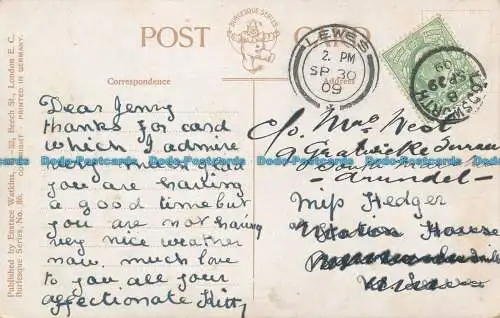 BURLESQUE SERIES
POST CARD
Correspondence
Address
LEWES
2. PM
SP 30
09
SP 29
09
Dear Jenny
thanks for card
which I admire
very much glad
you are having
a good time but
you are not having
very nice weather
now. much love
to you all your
affectionate Kitty
c/o Mrs West
9 Gratwicke Terrace
Arundel
Miss Hedger
Station House
Published by Ernest Watkins, Beech St., London E. C.
Burlesque Series, No. 86. COPYRIGHT - PRINTED IN GERMANY.
Dodo-Postcards Dodo-Postcards Dodo-Postcards Dodo-Postcards Dodo-Postcards